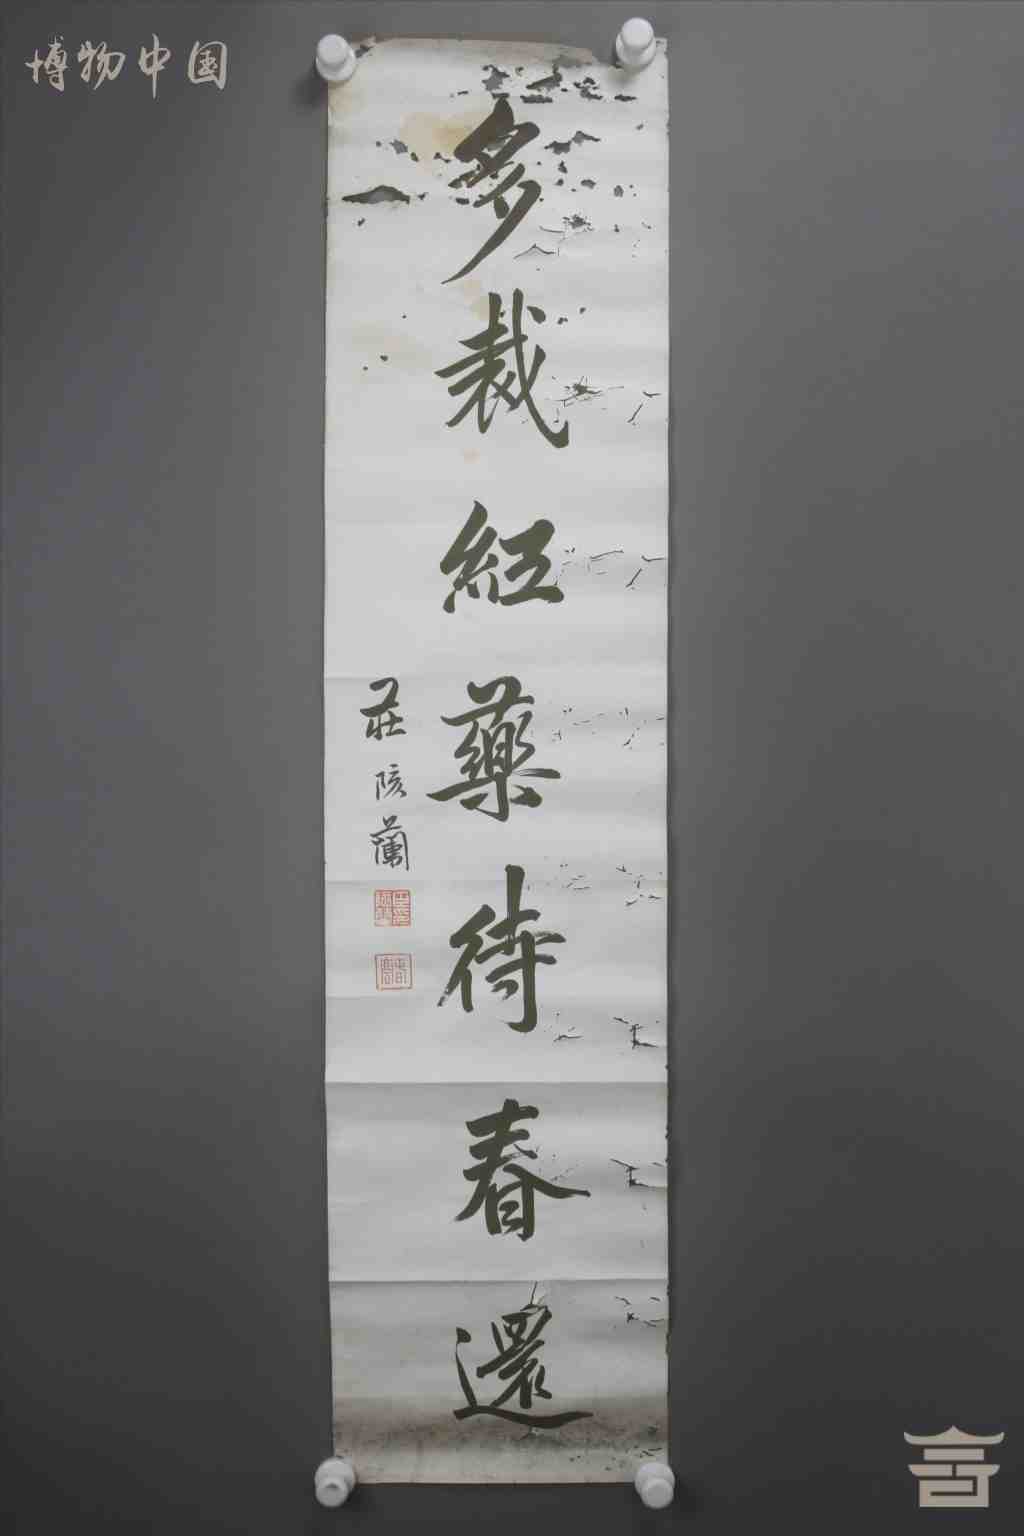 博物中国
多裁紅藥待春還
莊陔蘭